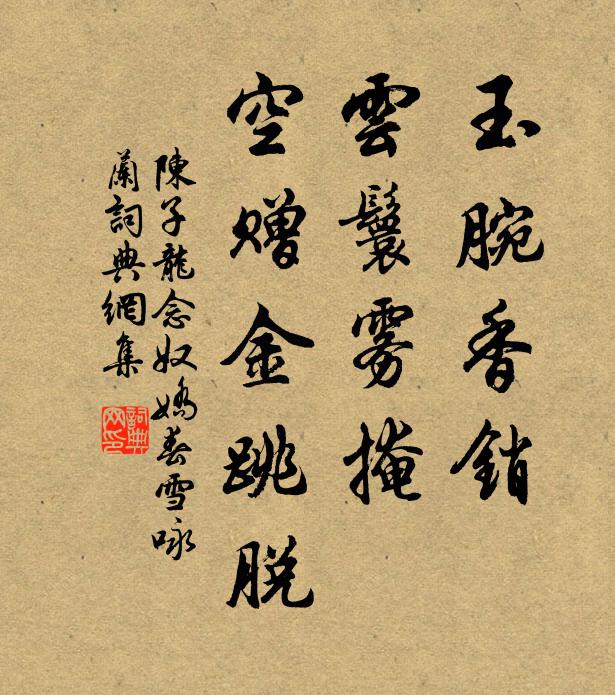 玉腕香銷
雲鬟霧掩
空贈金跳脫
陳子龍念奴嬌春雪咏
蘭詞典網集
詞典
网印